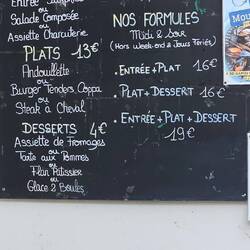 Entrée
ou
Salade Composée
ou
Assiette Charcuterie
PLATS 13€
Andouillette
ou
Burger Tenders Coppa
ou
Steak à Cheval
DESSERTS 4€
Assiette de fromages
ou
Tarte aux Pommes
ou
Flan Pâtissier
ou
Glace 2 Boules
NOS FORMULES
Midi & Soir
(Hors Week-end & Jours Fériés)
. ENTRÉE + PLAT 16€
. PLAT + DESSERT 16€
. ENTRÉE + PLAT + DESSERT
19€